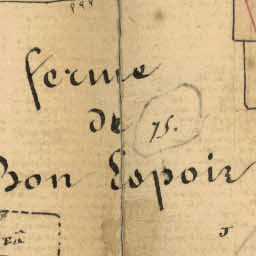 ferme
de 75.
Bon Espoir